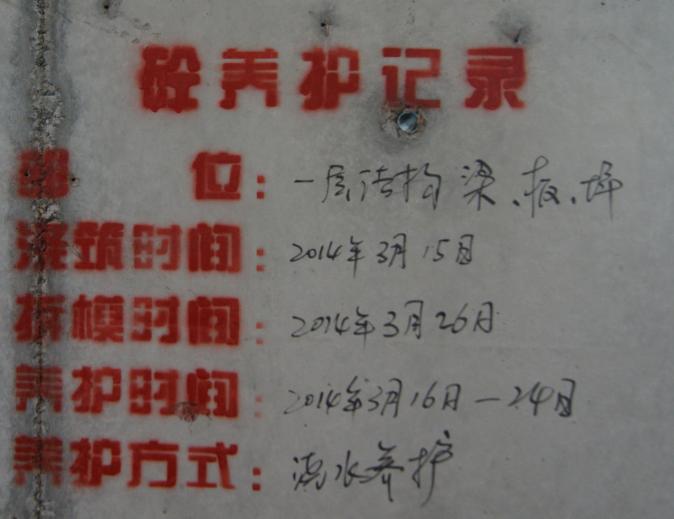 砼养护记录
部位：一层结构梁、板、
浇筑时间：2014年3月15日
拆模时间：2014年3月26日
养护时间：2014年3月16日—24日
养护方式：浇水养护